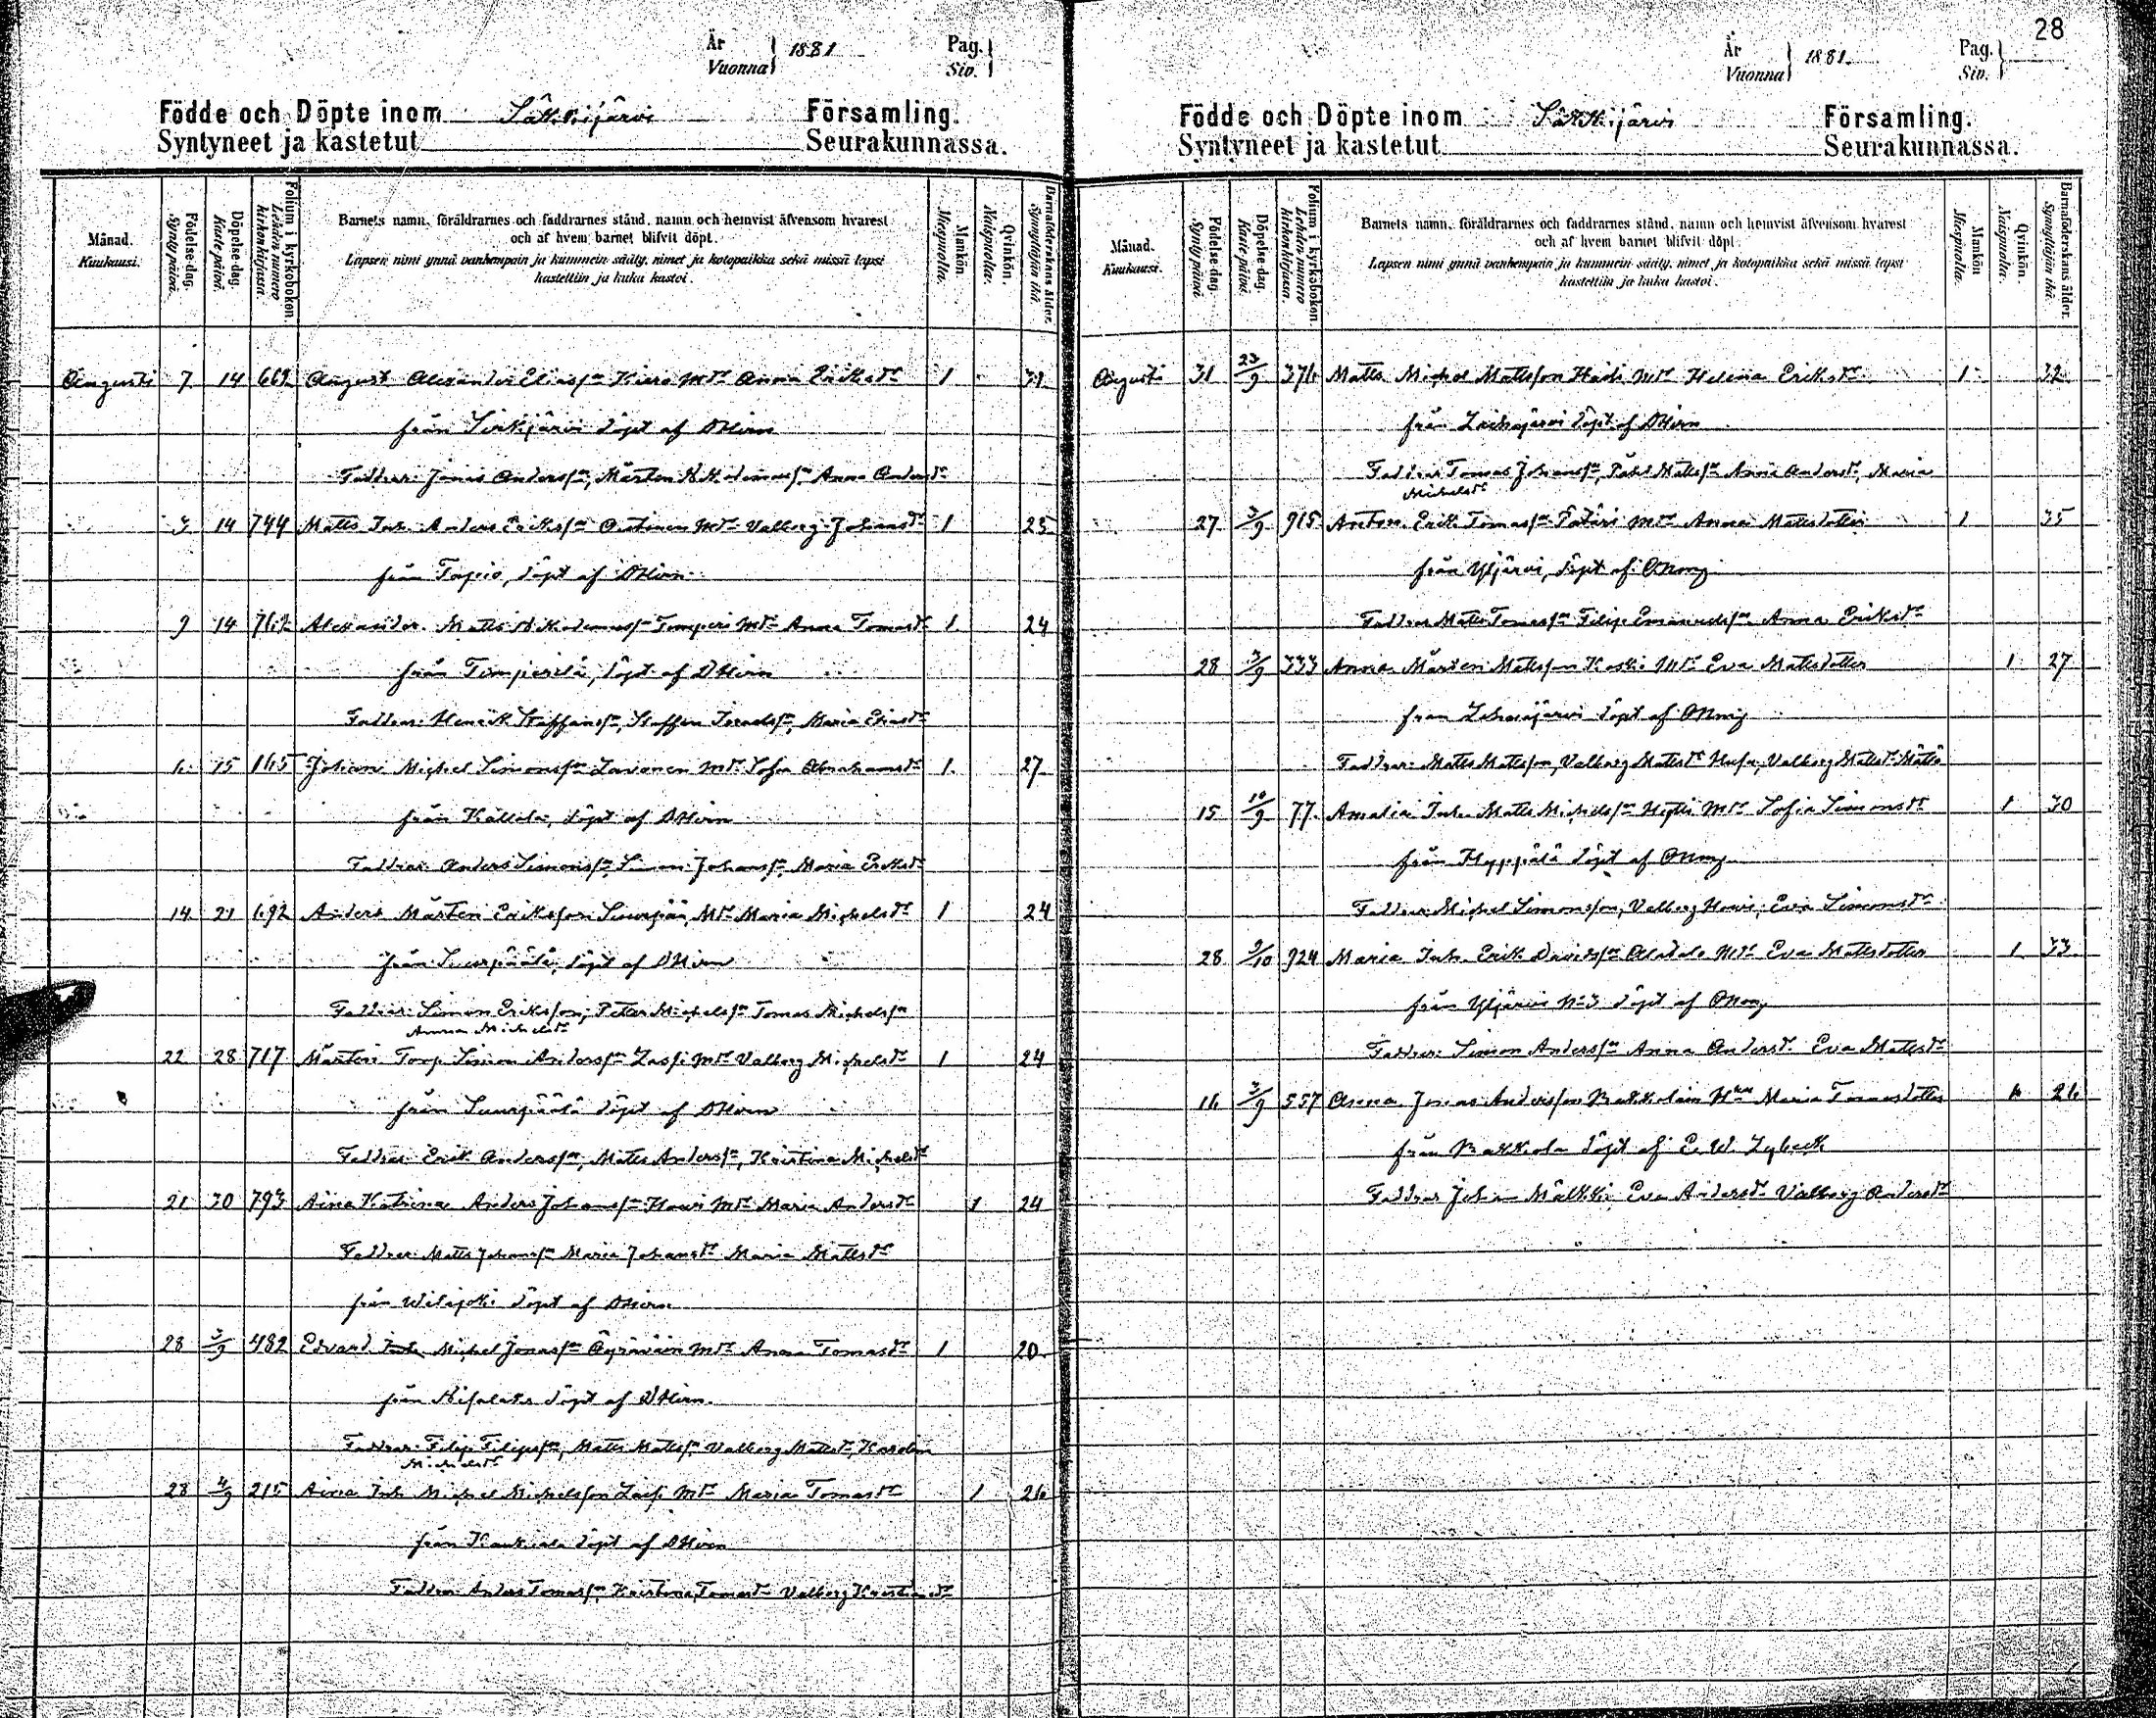 År
Vuonna } 1881
Pag.
Siv. }
Födde och Döpte inom Säkkijärvi Församling.
Syntyneet ja kastetut Seurakunnassa.
Månad.
Kuukausi.
Födelse-dag.
Syntypäivä.
Döpelse-dag.
Kastepäivä.
Folium i kyrkoboken.
Lehden numero kirkonkirjassa.
Barnets namn, föräldrarnes och faddrarnes stånd, namn och hemvist äfvensom hvarest
och af hvem barnet blifvit döpt.
Lapsen nimi ynnä vanhempain ja kummein sääty, nimet ja kotopaikka sekä missä lapsi
kastettiin ja kuka kastoi.
Mankön.
Miespuolta.
Qvinkön.
Naispuolta.
Barnaföderskans ålder.
Synnyttäjän ikä.
Augusti 7 14 669 August Alexander Eliass:n Kiero M:dr Anna Eriksd:r 1 31
från Sirkjärvi döpt af DHirn
Faddrar: Jonas Anderss:n, Mårten Anna Andersd:r
3 14 744 Matts Inh. Anders Erikss:n M:dr Valborg Johansd:r 1 25
från Tapio, döpt af DHirn
9 14 762 Alexander Matts Timperi M:dr Anna Tomasd:r 1 24
från Timperilä, döpt af DHirn
Faddrar: Henrik Staffanss:n, Staffan Maria Eliasd:r
6 15 165 Johan Michel Simonss:n Lavonen M:dr Sofia Abrahamsd:r 1 27
från Kallola, döpt af DHirn
Faddrar: Anders Simonss:n, Simon Johanss:n, Maria Eriksd:r
14 21 692 Anders Mårten Eriksson Suurpää, M:dr Maria Michelsd:r 1 24
från Suurpäälä, döpt af DHirn
Faddrar: Simon Eriksson, Peter Michelss:n Tomas Michelss:n
Anna Michelsd:r
22 28 717 Mårten Torp. Simon Anderss:n Lassi M:dr Valborg Michelsd:r 1 24
från Suurpäälä döpt af DHirn
Faddrar: Erik Anderss:n, Matts Anderss:n, Kristina Michelsd:r
21 30 793 Aina Katrina Anders Johanss:n Howi M:dr Maria Andersd:r 1 24
Faddrar: Matts Johanss:n Maria Johansd:r Maria Mattsd:r
från Wilajoki döpt af DHirn
28 3/9 482 Edvard Michel Jonass:n Äyräväin M:dr Anna Tomasd:r 1 20
från döpt af DHirn
Faddrar: Filip Filipss:n, Matts Mattss:n Valborg Mattsd:r, Karolin
Michelsd:r
28 4/9 215 Aina Inh. Michel Michelsson M:dr Maria Tomasd:r 1 26
från Kaukiala döpt af DHirn
Faddrar: Anders Tomass:n, Kristina Tomasd:r Valborg
28
År
Vuonna } 1881.
Pag.
Siv. }
Födde och Döpte inom Säkkijärvi Församling.
Syntyneet ja kastetut Seurakunnassa.
Månad.
Kuukausi.
Födelse-dag.
Syntypäivä.
Döpelse-dag.
Kastepäivä.
Folium i kyrkoboken.
Lehden numero kirkonkirjassa.
Barnets namn, föräldrarnes och faddrarnes stånd, namn och hemvist äfvensom hvarest
och af hvem barnet blifvit döpt.
Lapsen nimi ynnä vanhempain ja kummein sääty, nimet ja kotopaikka sekä missä lapsi
kastettiin ja kuka kastoi.
Mankön
Miespuolta.
Qvinkön.
Naispuolta.
Barnaföderskans ålder.
Synnyttäjän ikä.
Augusti 31 23/9 376 Matts Michel Mattsson M:dr Helena Eriksd:r 1 32
från döpt af DHirn
Faddrar Tomas Johanss:n, Påhl Mattss:n Anna Andersd:r, Maria
Michelsd:r
27 3/9 915 Anton Erik Tomass:n Pätäri M:dr Anna Mattsdotter 1 35
från Yljärvi, döpt af
Faddrar Matts Tomass:n Filip Emanuelss:n Anna Eriksd:r
28 3/9 333 Anna Mårten Mattsson Koski M:dr Eva Mattsdotter 1 27
från döpt af
Faddrar: Matts Mattsson, Valborg Mattsd:r Valborg Mattsd:r Mättö
15 10/9 77 Amalia Inh. Matts Michelss:n M:dr Sofia Simonsd:r 1 30
från Hyppälä döpt af
Faddrar Michel Simonsson, Valborg Howi, Eva Simonsd:r
28 9/10 924 Maria Inh. Erik Davidss:n M:dr Eva Mattsdotter 1 33
från Yljärvi N:o 3 döpt af
Faddrar: Simon Anderss:n Anna Andersd:r Eva Mattsd:r
16 3/9 557 Anna Jonas Andersson H:ru Maria Tomasdotter 1 26
från Pakkola döpt af E. W. Lybeck
Faddrar Johan Mälkki Eva Andersd:r Valborg Andersd:r